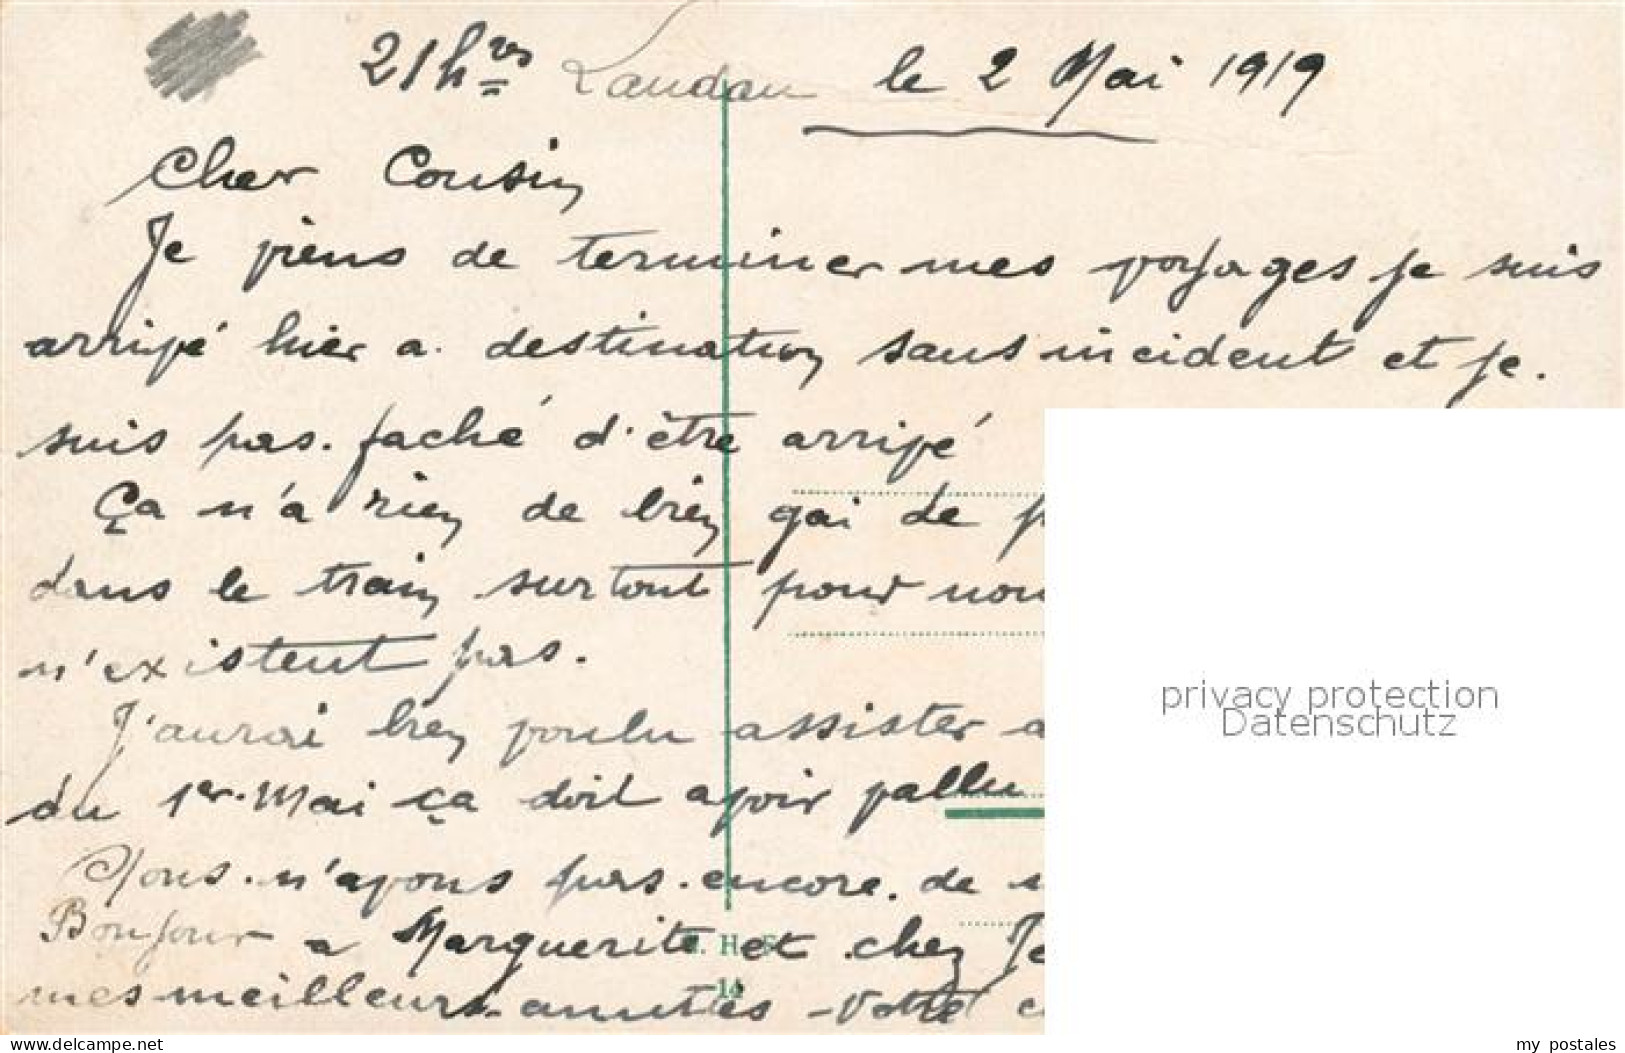 21 hres Landau le 2 Mai 1919
Cher Cousin
Je viens de terminer mes voyages je suis
arrivé hier a. destination sans incident et je.
suis pas. faché d'être arrivé
Ça n'a rien de bien gai de
dans le train surtout pour
n'existent pas.
J'aurai bien voulu assister
du 1er. Mai ça doit avoir vallu
Nous. n'avons pas. encore. de
Bonjour a Marguerite et chez
mes meilleurs. amitiés - Votre
14
privacy protection
Datenschutz
delcampe.net
my_postales